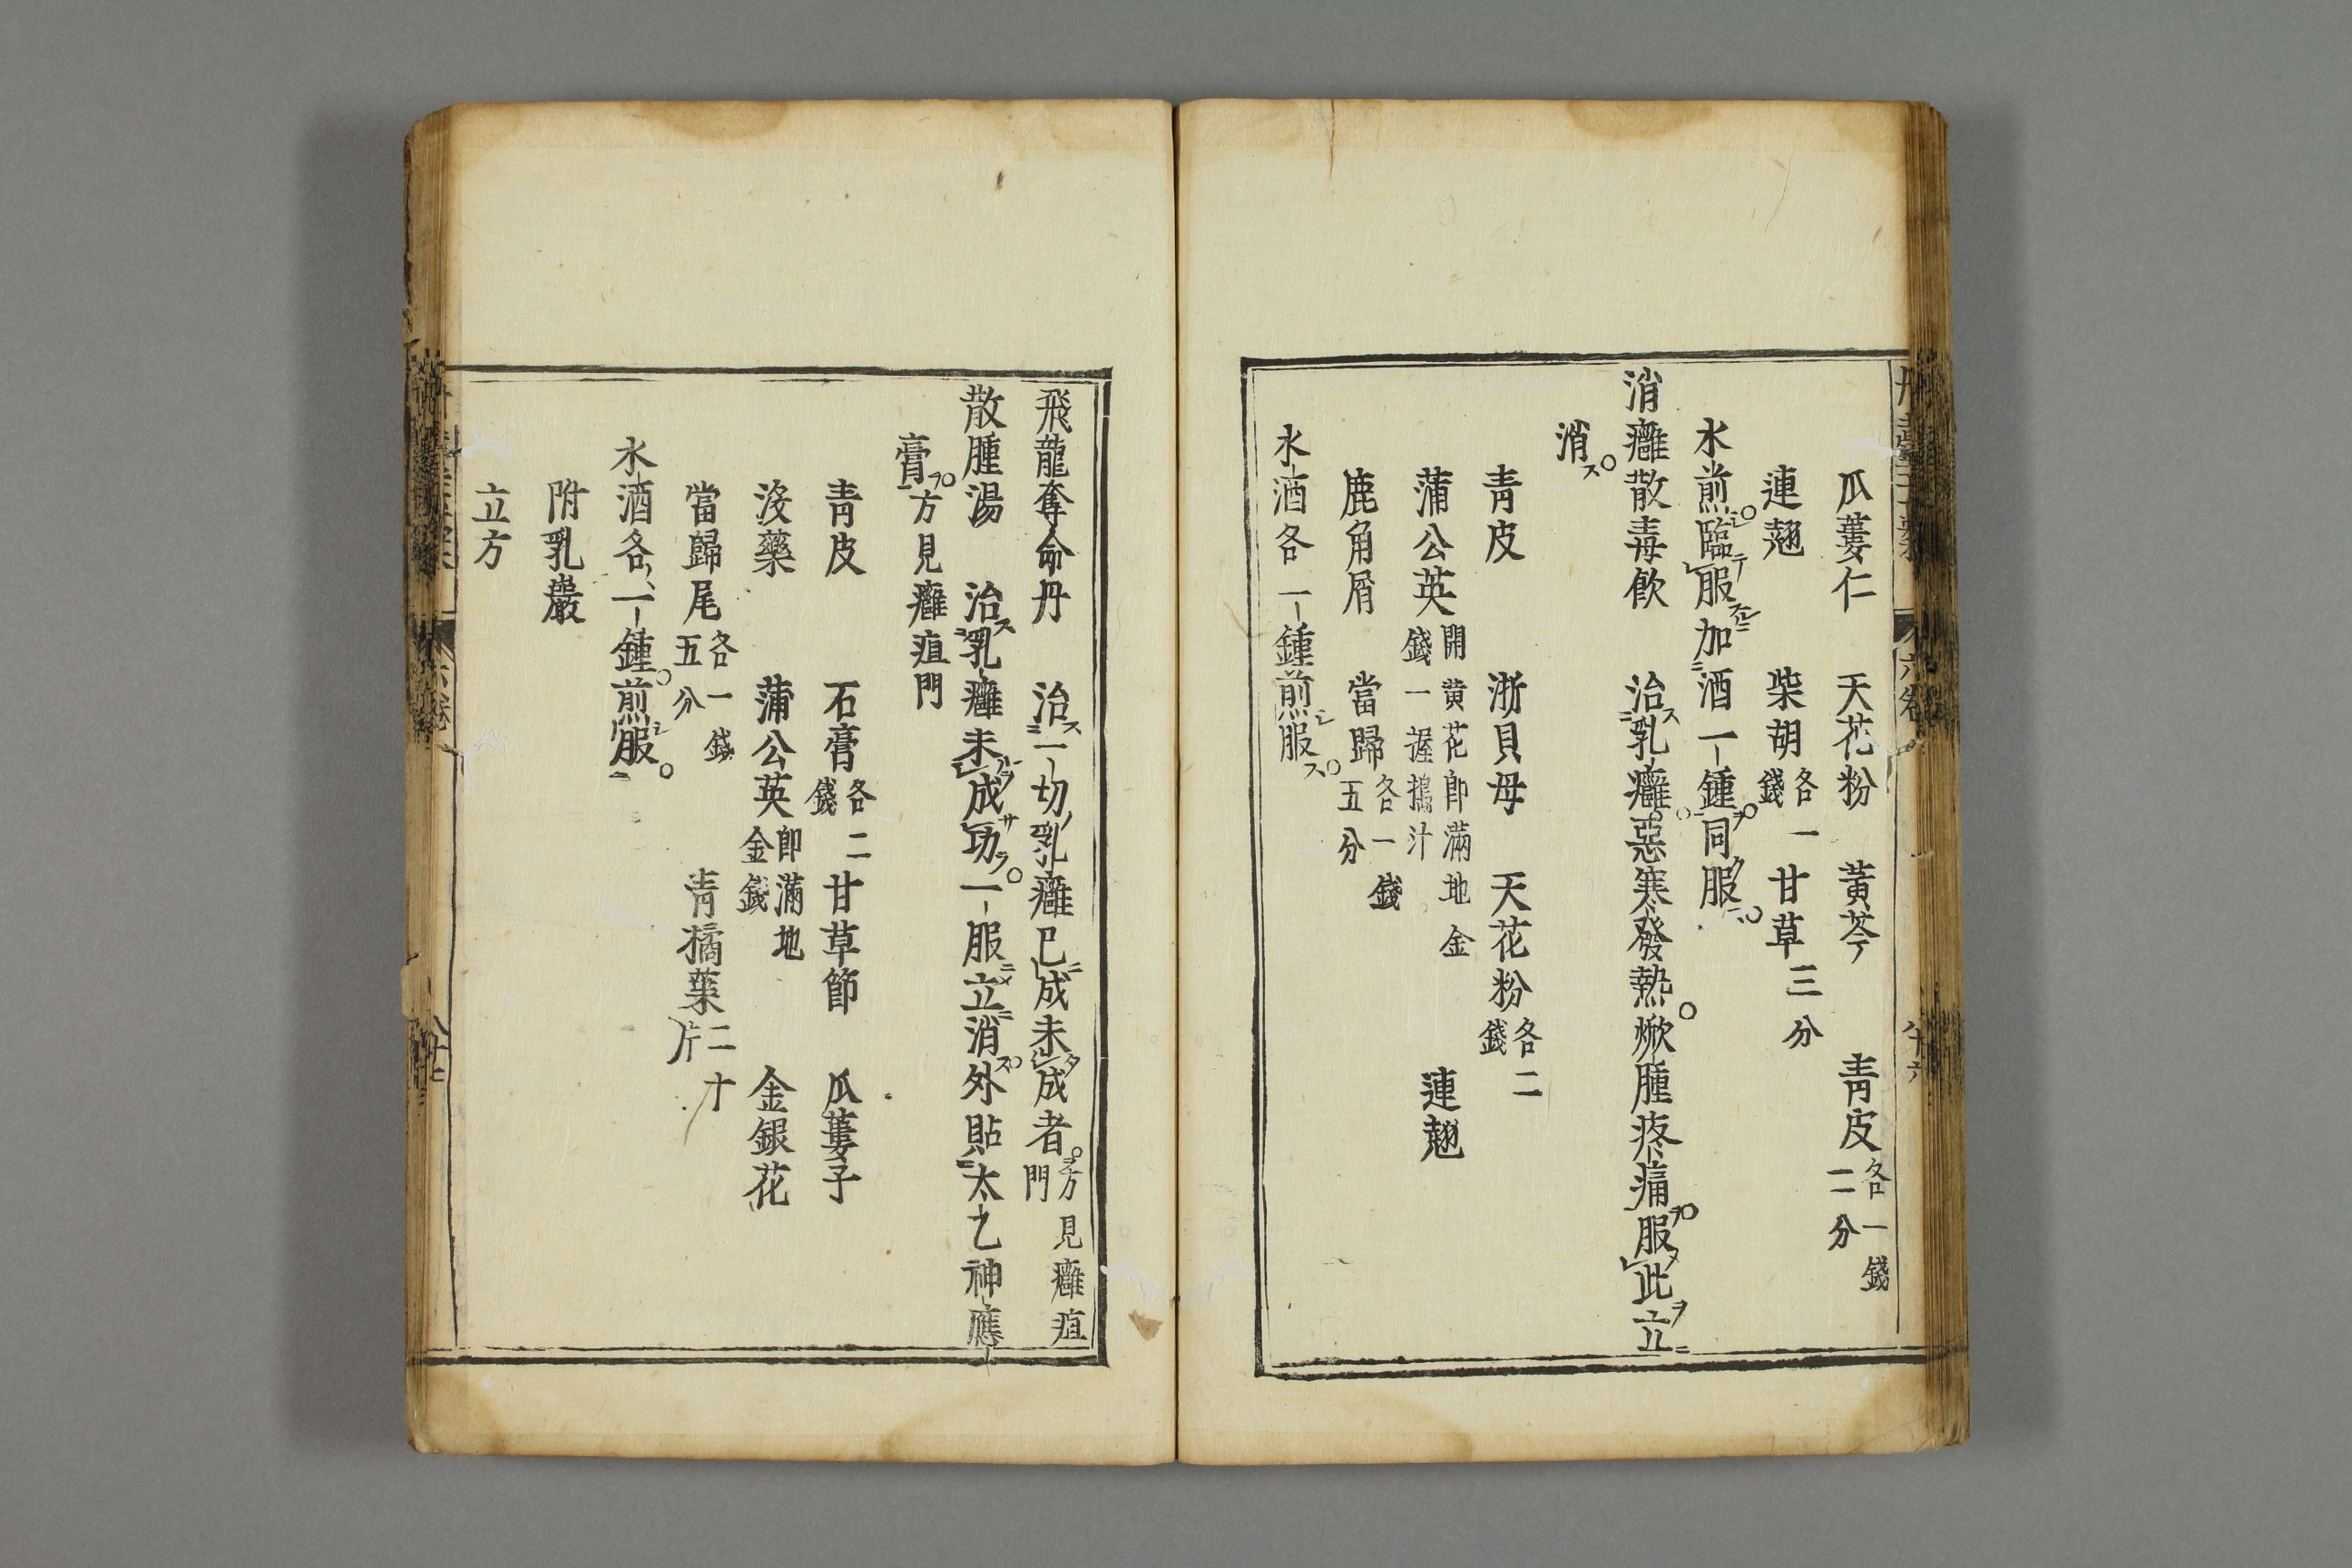 瓜蔞仁 天花粉 黃芩 青皮各一錢二分
連翹 柴胡各一錢 甘草三分
水煎臨服加酒一鍾同服
消癰散毒飲 治乳癰惡寒發熱焮腫疼痛服此立
消ス
青皮 浙貝母 天花粉各二錢
蒲公英開黃花即滿地金錢一握搗汁 連翹
鹿角屑 當歸各一錢五分
水酒各一鍾煎服ス
飛龍奪命丹 治一切乳癰已成未成者方見癰疽門
散腫湯 治乳癰未成功一服立消外貼太乙神應
膏方見癰疽門
青皮 石膏各二錢 甘草節 瓜蔞子
沒藥 蒲公英即滿地金錢 金銀花
當歸尾各一錢五分 青橘葉二十片
水酒各一鍾煎服
附乳巖
立方